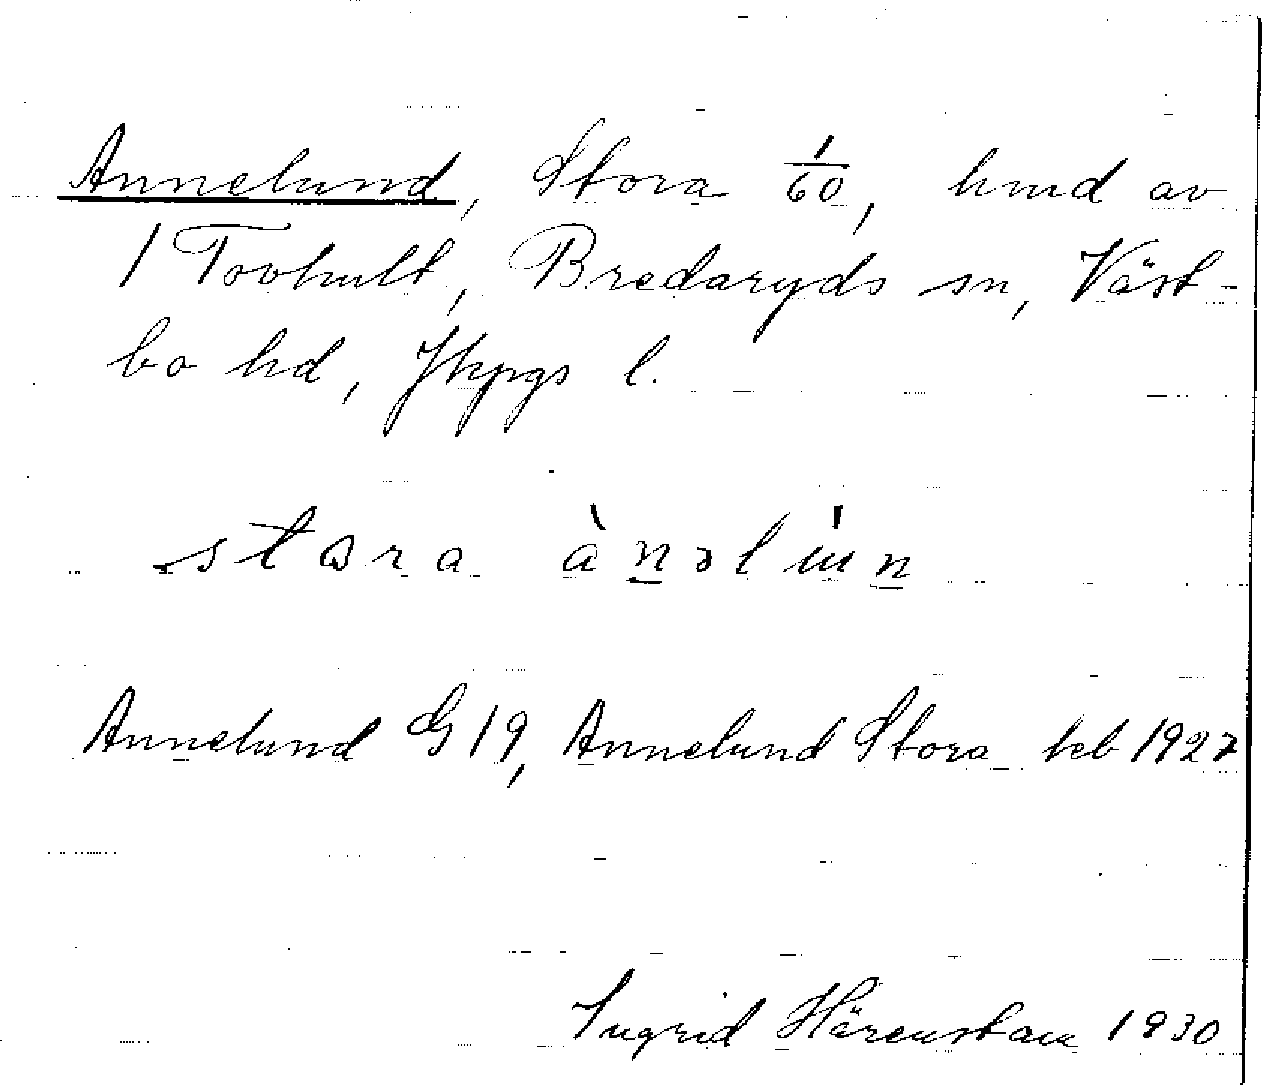 Annelund, Stora 1/60, hmd av
1 Tovhult, Bredaryds sn, Väst-
bo hd, Jkpgs l.
stora ànəlún
Annelund G 19, Annelund Stora beb 1927
Ingrid Härenstam 1930